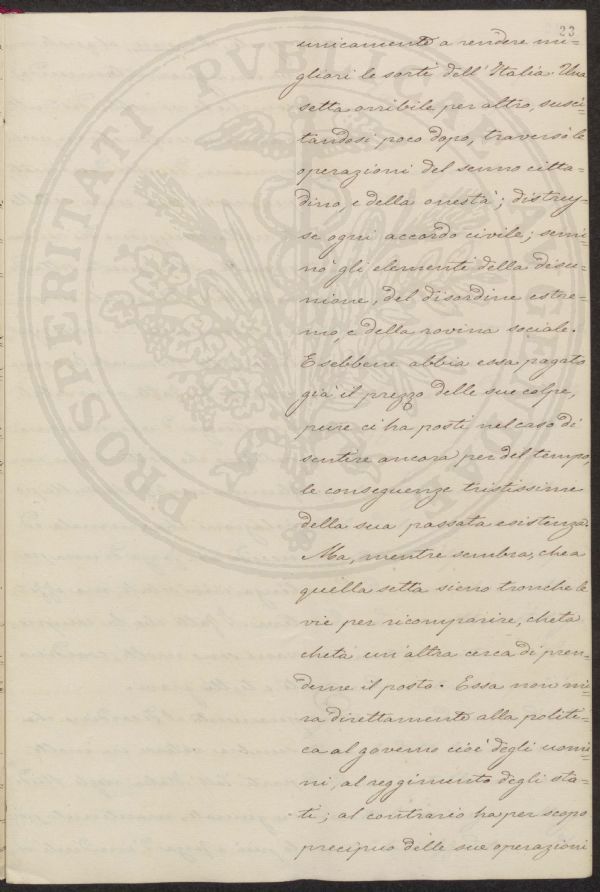 23
unicamente a rendere mi=
gliori le sorti dell'Italia. Una
setta orribile per altro, susci=
tandosi poco dopo, traversò le
operazioni del senno citta=
dino, e della onestà; distrus=
se ogni accordo civile; semi=
nò gli elementi della disu=
nione, del disordine estre=
mo, e della rovina sociale.
E sebbene abbia essa pagato
già il prezzo delle sue colpe,
pure ci ha posti nel caso di
sentire ancora per del tempo,
le conseguenze tristissime
della sua passata esistenza.
Ma, mentre sembra, che a
quella setta sieno tronche le
vie per ricomparire, cheta
cheta un'altra cerca di pren=
derne il posto. Essa non mi=
ra direttamente alla politi=
ca al governo cioè degli uomi=
ni, al reggimento degli sta=
ti; al contrario ha per scopo
precipuo delle sue operazioni
PROSPERITATI PUBLICAE